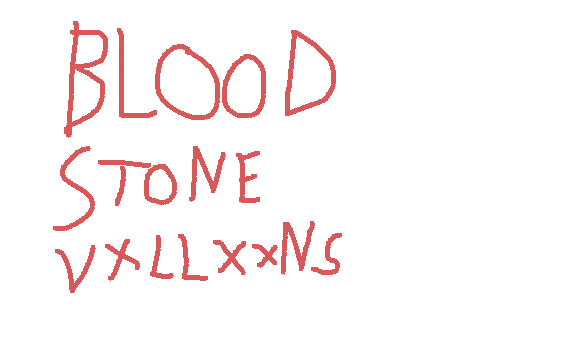 BLOOD
STONE
VXLLXXNS